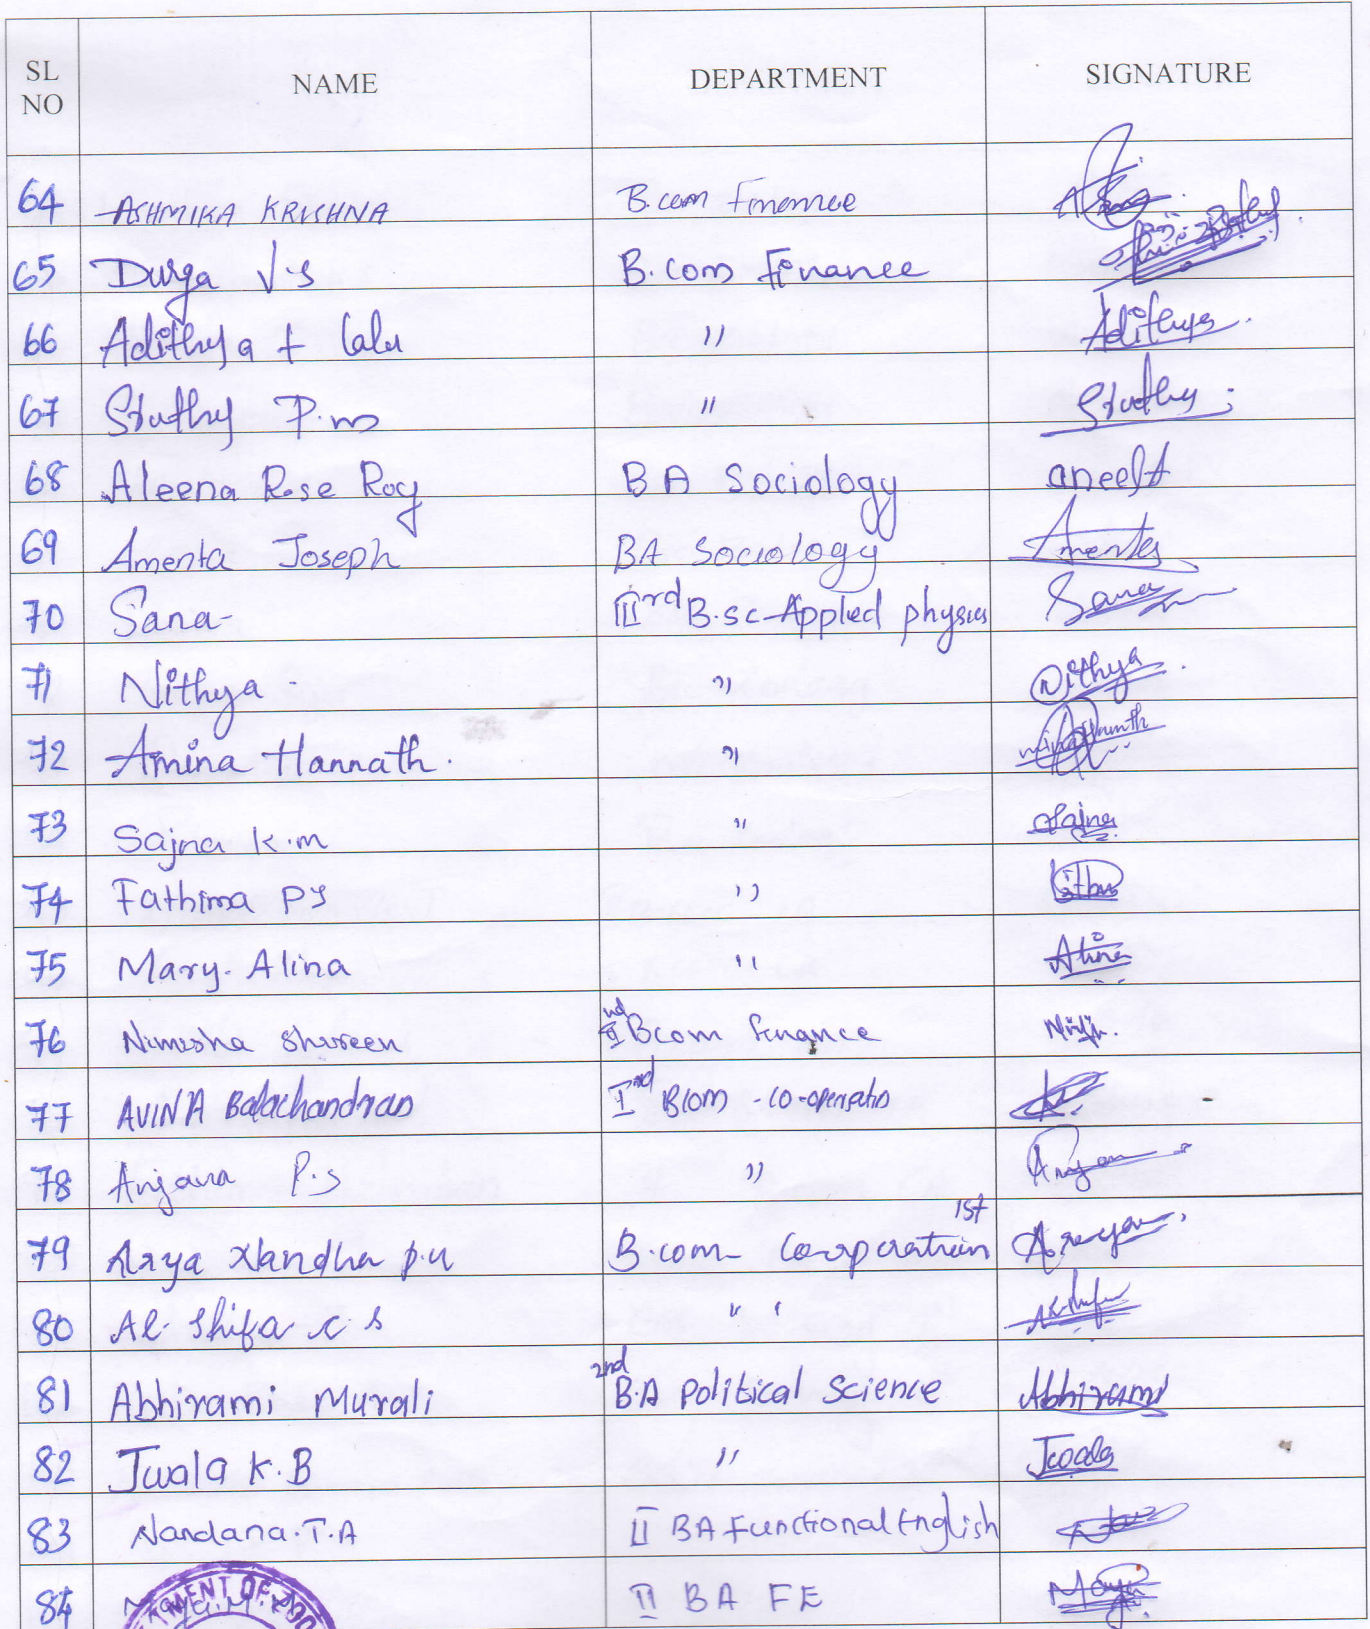 SL NO NAME DEPARTMENT SIGNATURE
64 ASHMIKA KRISHNA B.com Finance
65 Durga V.S B.com Finance
66 Adithya t lalu " Adithya
67 Sruthy P.m " Sruthy
68 Aleena Rose Roy BA Sociology
69 Amenta Joseph BA Sociology Amenta
70 Sana IIIrd B.sc Applied physics Sana
71 Nithya " Nithya
72 Amina Hannath. "
73 Sajna K.m " Sajna
74 Fathima PS "
75 Mary. Alina " Alina
76 Nimisha Shireen IInd Bcom finance
77 AVINA Balachandran Bcom - co-operatn
78 Anjana P.S " Anjan
79 Arya Nandha p.u B.com Co-operation 1st
80 Al Shifa K S "
81 Abhirami Murali 2nd B.A Political Science Abhirami
82 Jwala K.B " Jwala
83 Nandana.T.A II BA Functional English
84 II BA FE Maya